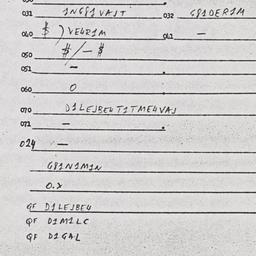 031 1NG81VAJT 032 G81DER1M
040 $ ) VE4R1M 041 —
050 $/-$
051 -
060 0
070 D1LEJBE4T1TME4VAJ
071 —
024 —
G81N1M1N
0.X
QF D1LEJBE4
QF D1M1LC
QF D1GAL